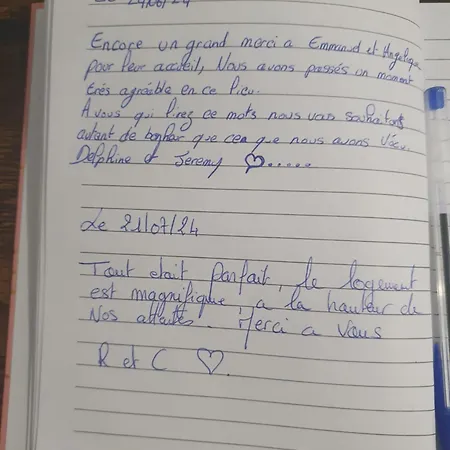 Encore un grand merci a Emmanuel et Angelique
pour leur accueil, Nous avons passés un moment
très agréable en ce lieu.
A vous qui lirez ce mots nous vous souhaitons
autant de bonheur que ceu que nous avons Vécu.
Delphine et Jeremy ♡.....
Le 21/07/24
Tout etait parfait, le logement
est magnifique a la hauteur de
Nos attentes. Merci a Vous
R et C ♡.